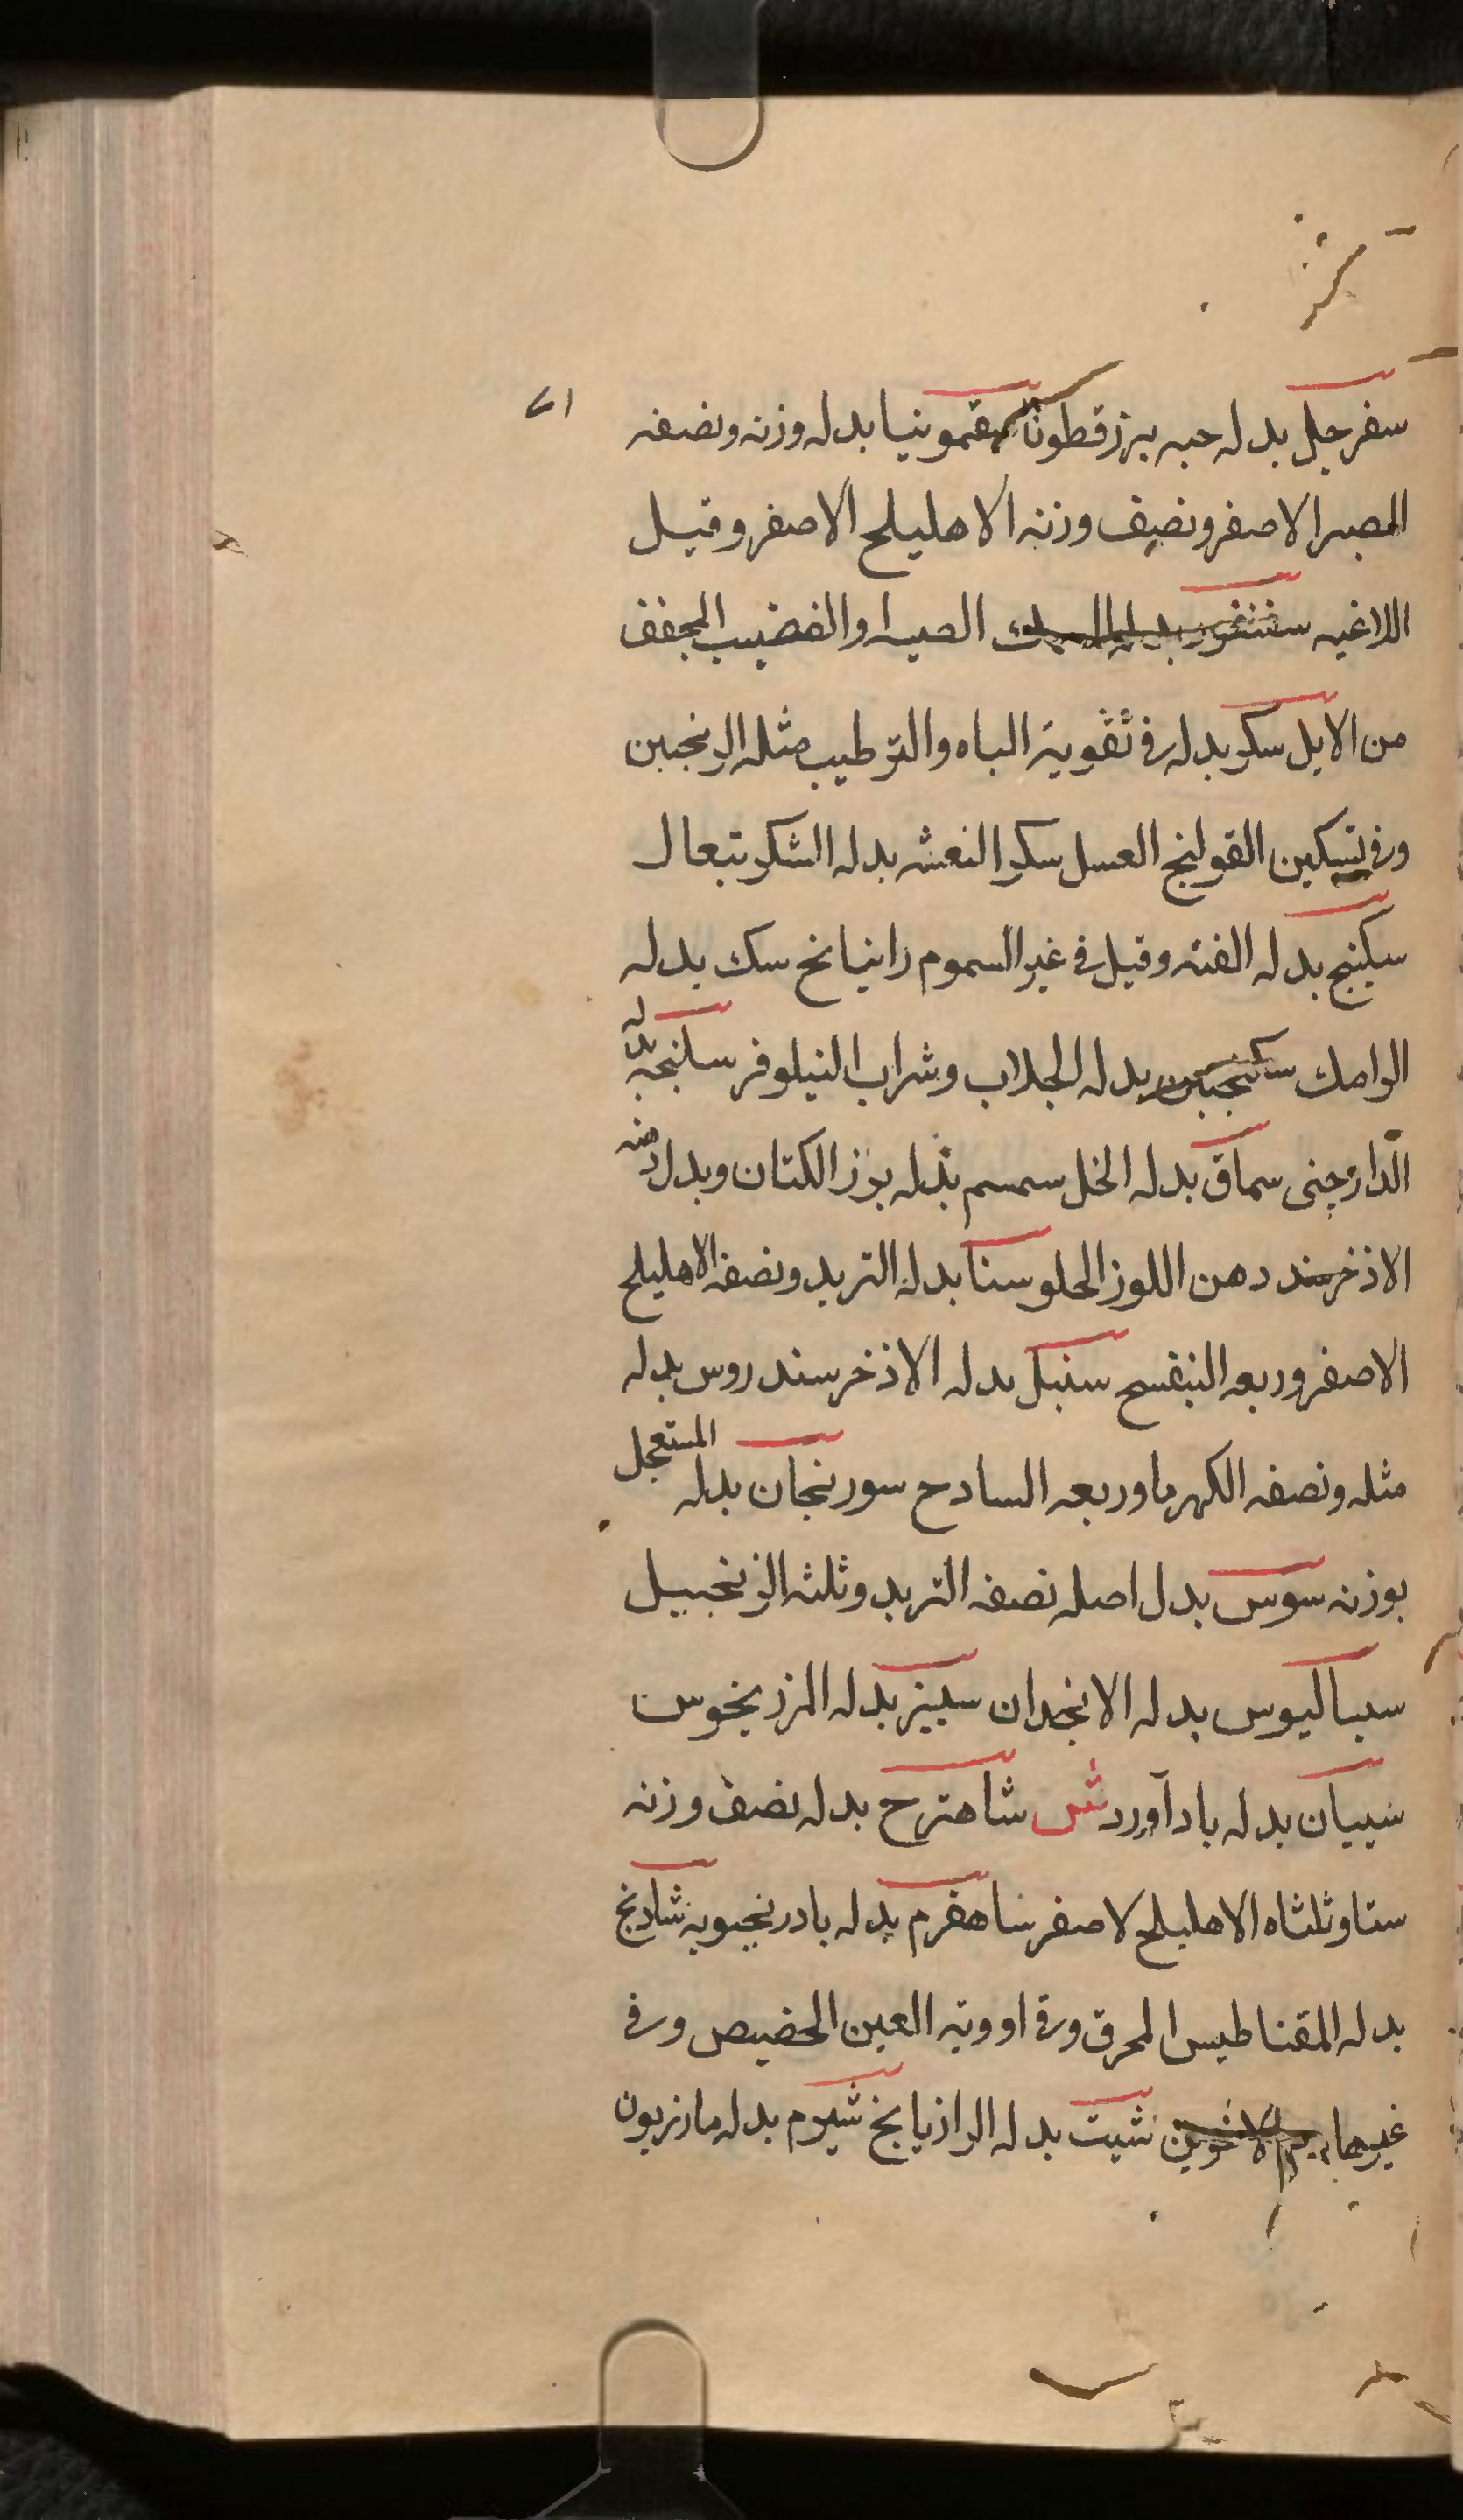 سفرجل بدله حبه بزرقطونا سقمونيا بدله وزنه ونصفه
الصبر الاصفر ونصف وزنه الاهليلج الاصفر وقيل
اللاغيه سقنقور بدله والقضيب المجفف
من الايل سكر بدله فى تقوية الباه والترطيب مثله الترنجبين
وفى تسكين القولنج العسل سكر العشر بدله السكر تيغال
سكبينج بدله القنه وقيل فى غير السموم راتيانج سك بدله
الرامك سكنجبين بدله الجلاب وشراب النيلوفر سليخه بدله
الدارچينى سماق بدله الخل سمسم بدله بزر الكتان وبدل دهنه
الاذخر دهن اللوز الحلو سنا بدله التربد ونصفه الاهليلج
الاصفر وربعه البنفسج سنبل بدله الاذخر سندروس بدله
مثله ونصفه الكهربا وربعه السادج سورنجان بدله المستعجل
بوزنه سوس بدل اصله نصفه التربد وثلثه الزنجبيل
سساليوس بدله الانجدان سيسنبر بدله المرزنجوس
سيبيان بدله بادآورد ش شاهترج بدله نصف وزنه
سنا وثلثاه الاهليلج لاصفر شاهفرم بدله بادرنجبويه شادنج
بدله المقناطيس المحرق وفى ادوية العين الحضيض وفى
غيرها دم الاخوين شبت بدله الرازيانج شبرم بدله مازريون